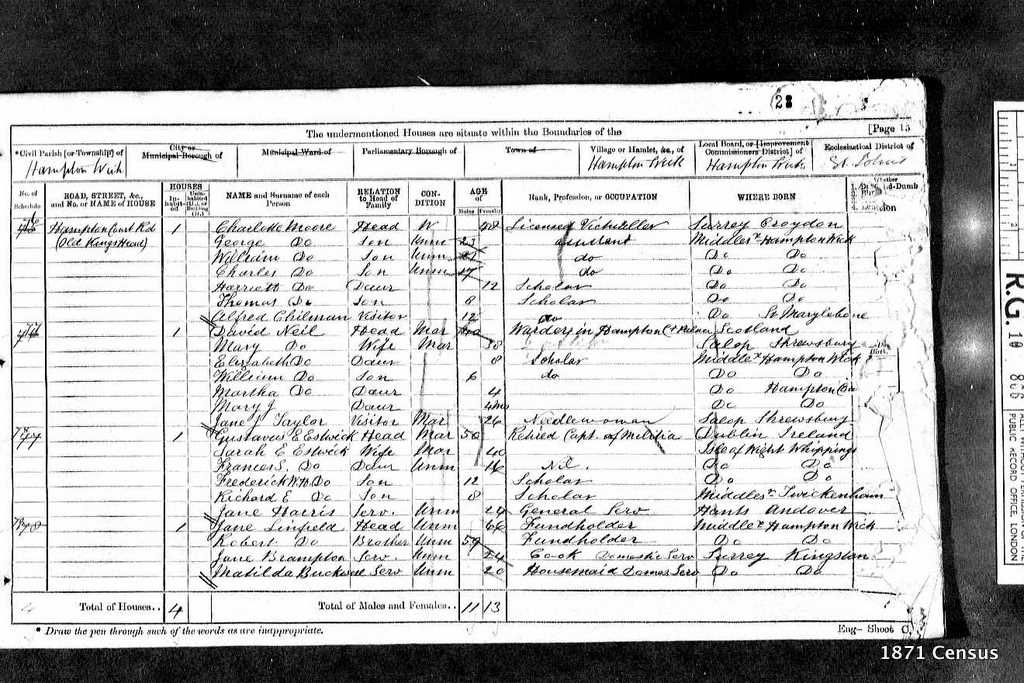 22
The undermentioned Houses are situate within the Boundaries of the [Page 15
*Civil Parish [or Township] of City or Municipal Borough of Municipal Ward of Parliamentary Borough of Town of Village or Hamlet, &c., of Local Board, or [Improvement Commissioners District] of Ecclesiastical District of
Hampton Wick Hampton Wick Hampton Wick St. Johns
No. of Schedule ROAD, STREET, &c., and No. or NAME of HOUSE HOUSES Inhabited Uninhabited (U.), or Building (B.) NAME and Surname of each Person RELATION to Head of Family CONDITION AGE of Males Females Rank, Profession, or OCCUPATION WHERE BORN Whether Deaf-and-Dumb
Hampton Court Rd 1 Charlotte Moore Head W 48 Licensed Victualler Surrey Croydon
(Old Kings Head) George Do Son Unm 23 assistant Middlesx Hampton Wick
William Do Son Unm 21 do Do Do
Charles Do Son Unm 17 do Do Do
Harriett Do Daur 12 Scholar Do Do
Thomas Do Son 8 Scholar Do Do
Alfred Chilman Visitor 12 do Do St Marylebone
1 David Neil Head Mar Warder in Hampton Ct Palace Scotland
Mary Do Wife Mar 38 Salop Shrewsbury
Elizabeth Do Daur 8 Scholar Middlex Hampton Wick
William Do Son 6 do Do Do
Martha Do Daur 4 Do Hampton Co
Mary J Daur 4mo Do Do
Jane J Taylor Visitor Mar 26 Needlewoman Salop Shrewsbury
77 1 Gustavus E Estwick Head Mar 50 Retired Capt. of Militia Dublin Ireland
Sarah E Estwick Wife Mar 40 Isle of Wight Whippingm
Frances S. Do Daur Unm 16 Nil. Do Do
Frederick W.B. Do Son 12 Scholar Do Do
Richard E Do Son 8 Scholar Middlesx Twickenham
Jane Harris Serv. Unm 24 General Serv Hants Andover
78 1 Jane Linfield Head Unm 66 Fundholder Middlex Hampton Wick
Robert Do Brother Unm 59 Fundholder Do Do
Jane Brampton Serv. Unm 24 Cook Domestic Serv Surrey Kingston
Matilda Buckwell Serv Unm 20 Housemaid Domes Serv Do Do
4 Total of Houses.. 4 Total of Males and Females.. 11 13
* Draw the pen through such of the words as are inappropriate. Eng- Sheet C.
R.G. 10 866
PUBLIC RECORD OFFICE, LONDON
1871 Census